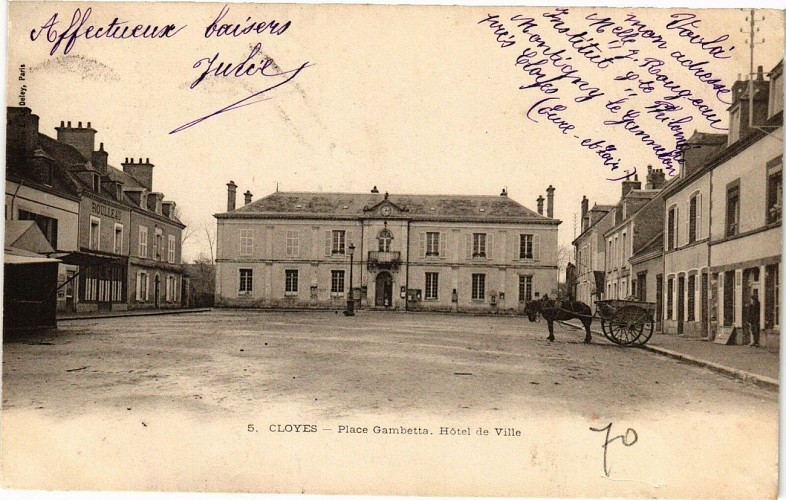 Affectueux baisers
Julie
Voilà
mon adresse
Melle J. Rougeau
Institut Ste Philomène
Montigny le Gannelon
près Cloyes
(Eure-et-Loir)
Deley, Paris
BOULLEAU
5. CLOYES — Place Gambetta. Hôtel de Ville
70